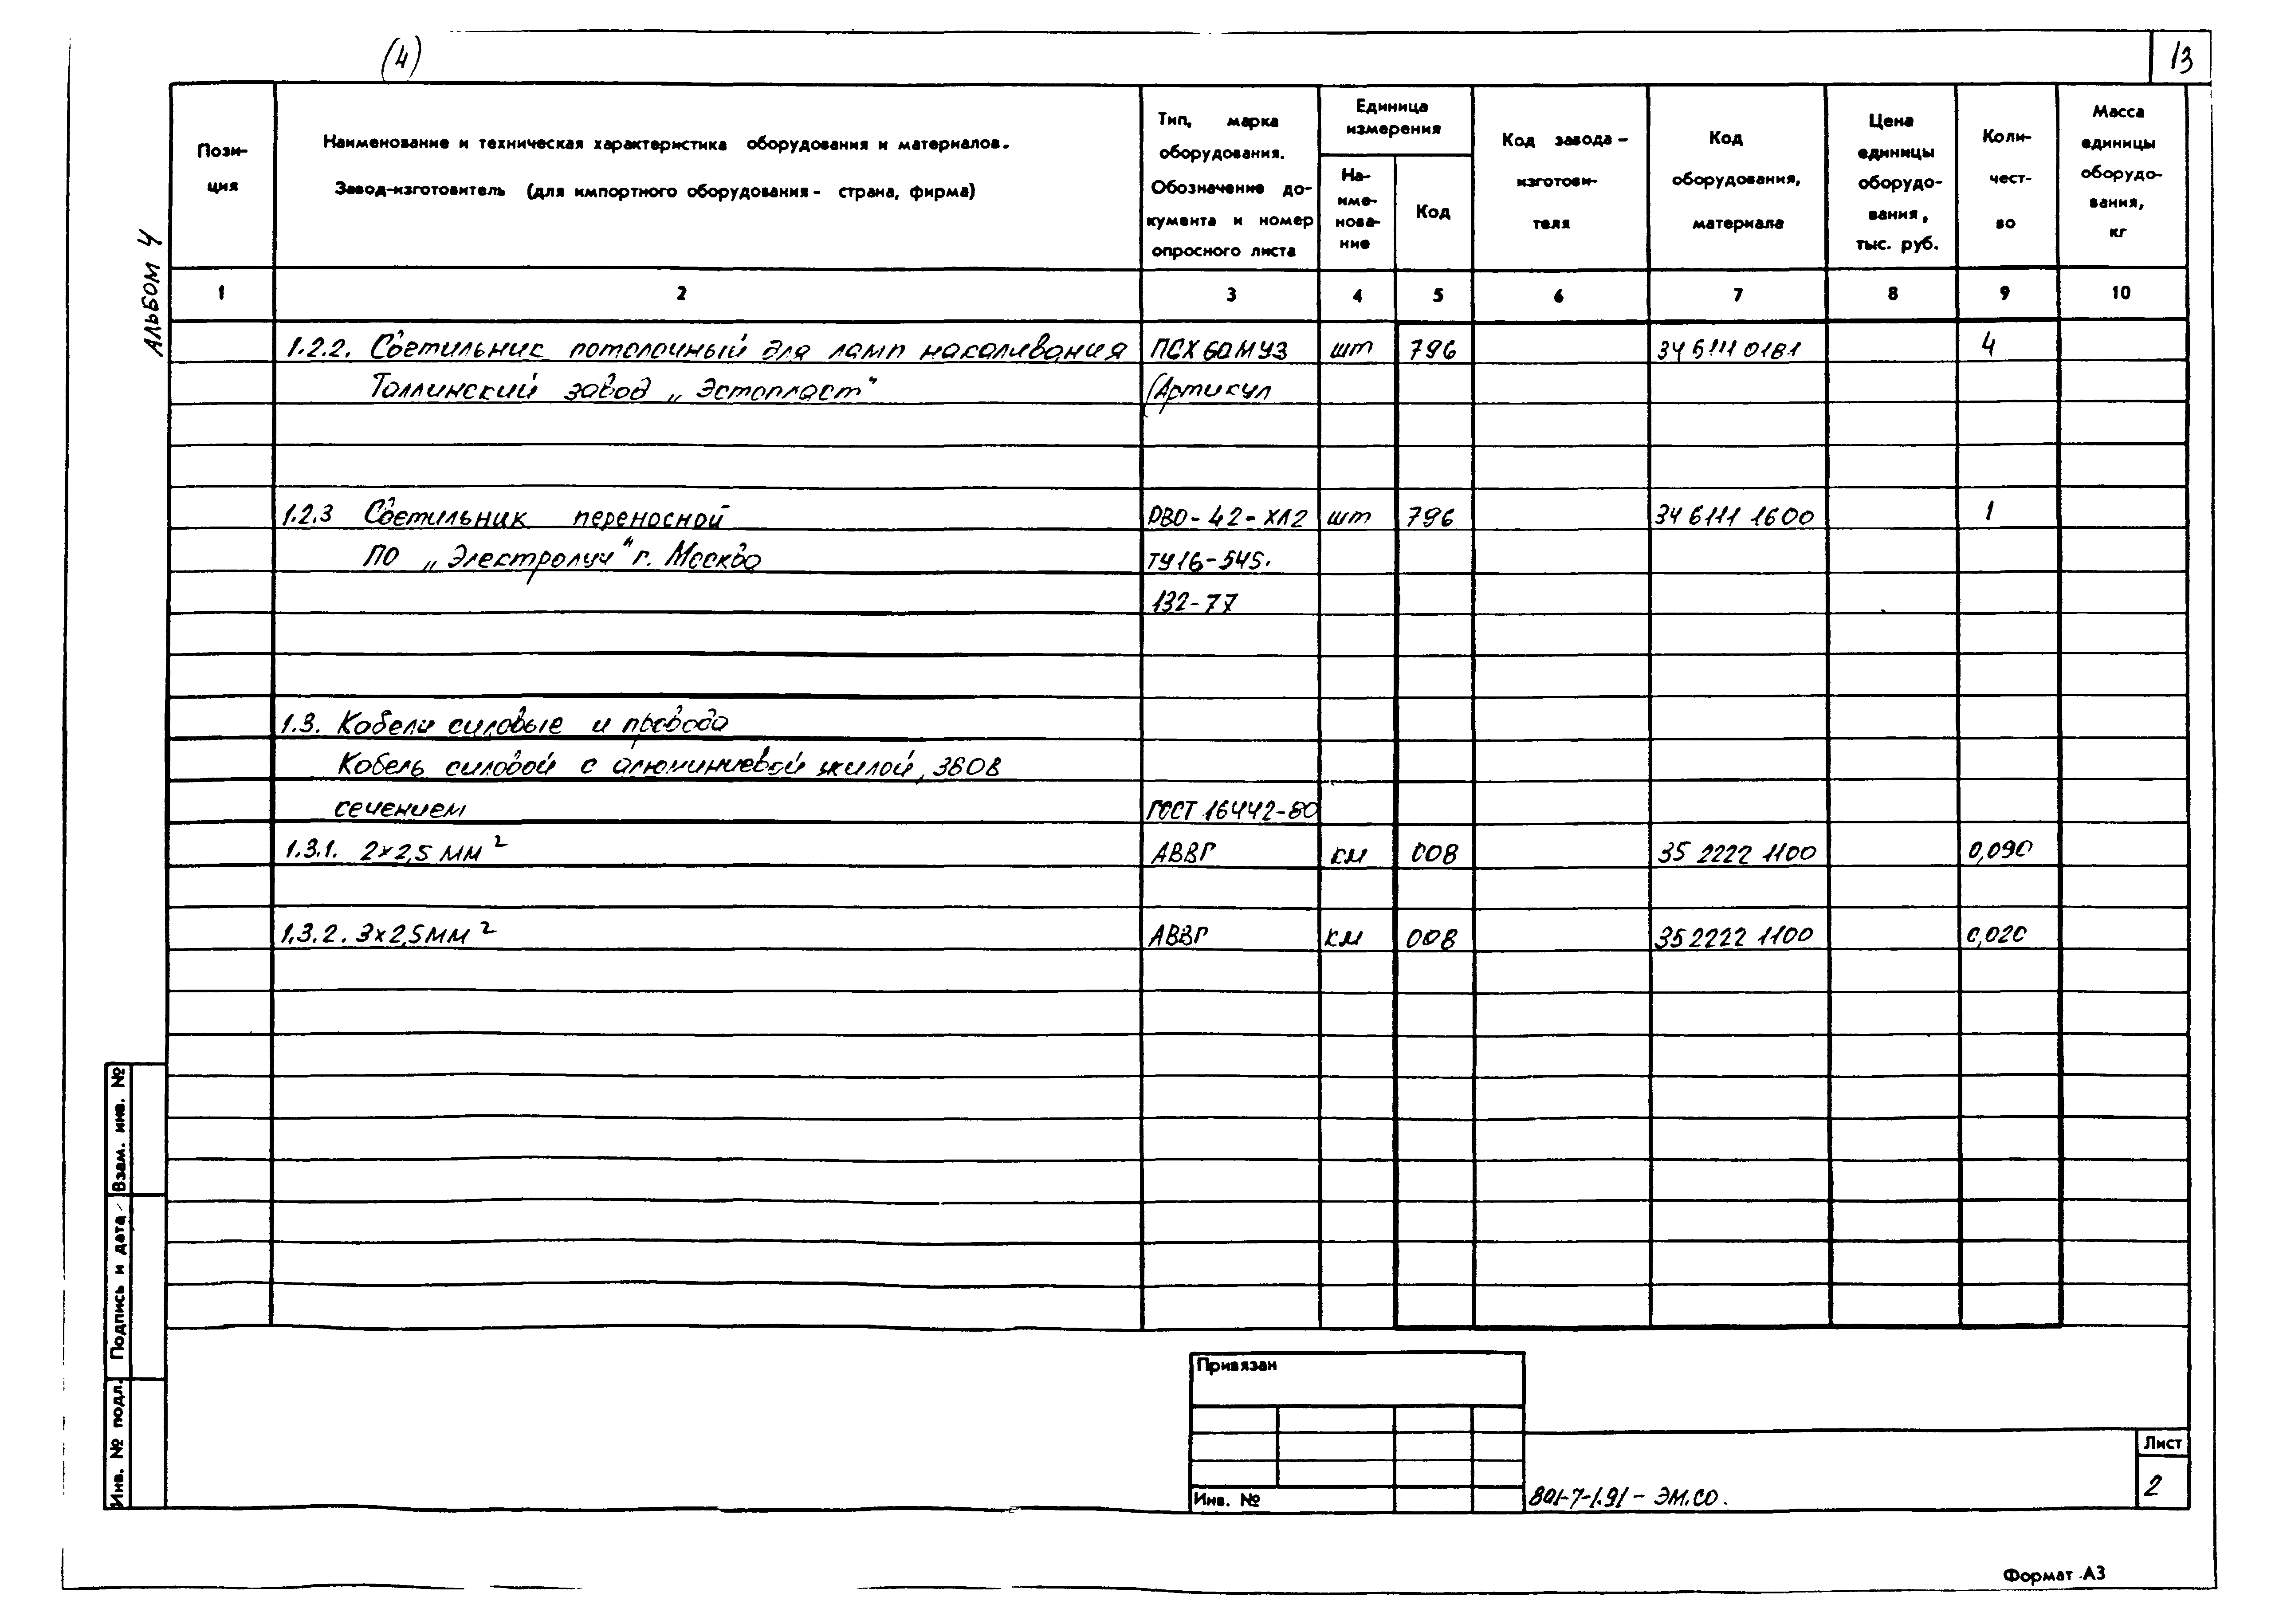 (4)
13
Альбом 4
Пози-
ция
Наименование и техническая характеристика оборудования и материалов.
Завод-изготовитель (для импортного оборудования - страна, фирма)
Тип, марка
оборудования.
Обозначение до-
кумента и номер
опросного листа
Единица
измерения
На-
име-
нова-
ние
Код
Код завода -
изготови-
теля
Код
оборудования,
материала
Цена
единицы
оборудо-
вания,
тыс. руб.
Коли-
чест-
во
Масса
единицы
оборудо-
вания,
кг
1 2 3 4 5 6 7 8 9 10
1.2.2. Светильник потолочный для ламп накаливания ПСХ 60МУЗ шт 796 34 6111 0181 4
Таллинский завод „Эстопласт" (Артикул
1.2.3 Светильник переносной РВО-42-ХЛ2 шт 796 34 6111 1600 1
ПО „Электролуч" г. Москва ТУ16-545.
132-77
1.3. Кабели силовые и провода
Кабель силовой с алюминиевой жилой, 380В
сечением ГОСТ 16442-80
1.3.1. 2×2,5 мм² АВВГ км 008 35 2222 1100 0,090
1.3.2. 3×2,5 мм² АВВГ км 008 35 2222 1100 0,020
Взам. инв. №
Подпись и дата
Инв. № подл.
Привязан
Инв. №
801-7-1.91 - ЭМ.СО.
Лист
2
Формат А3